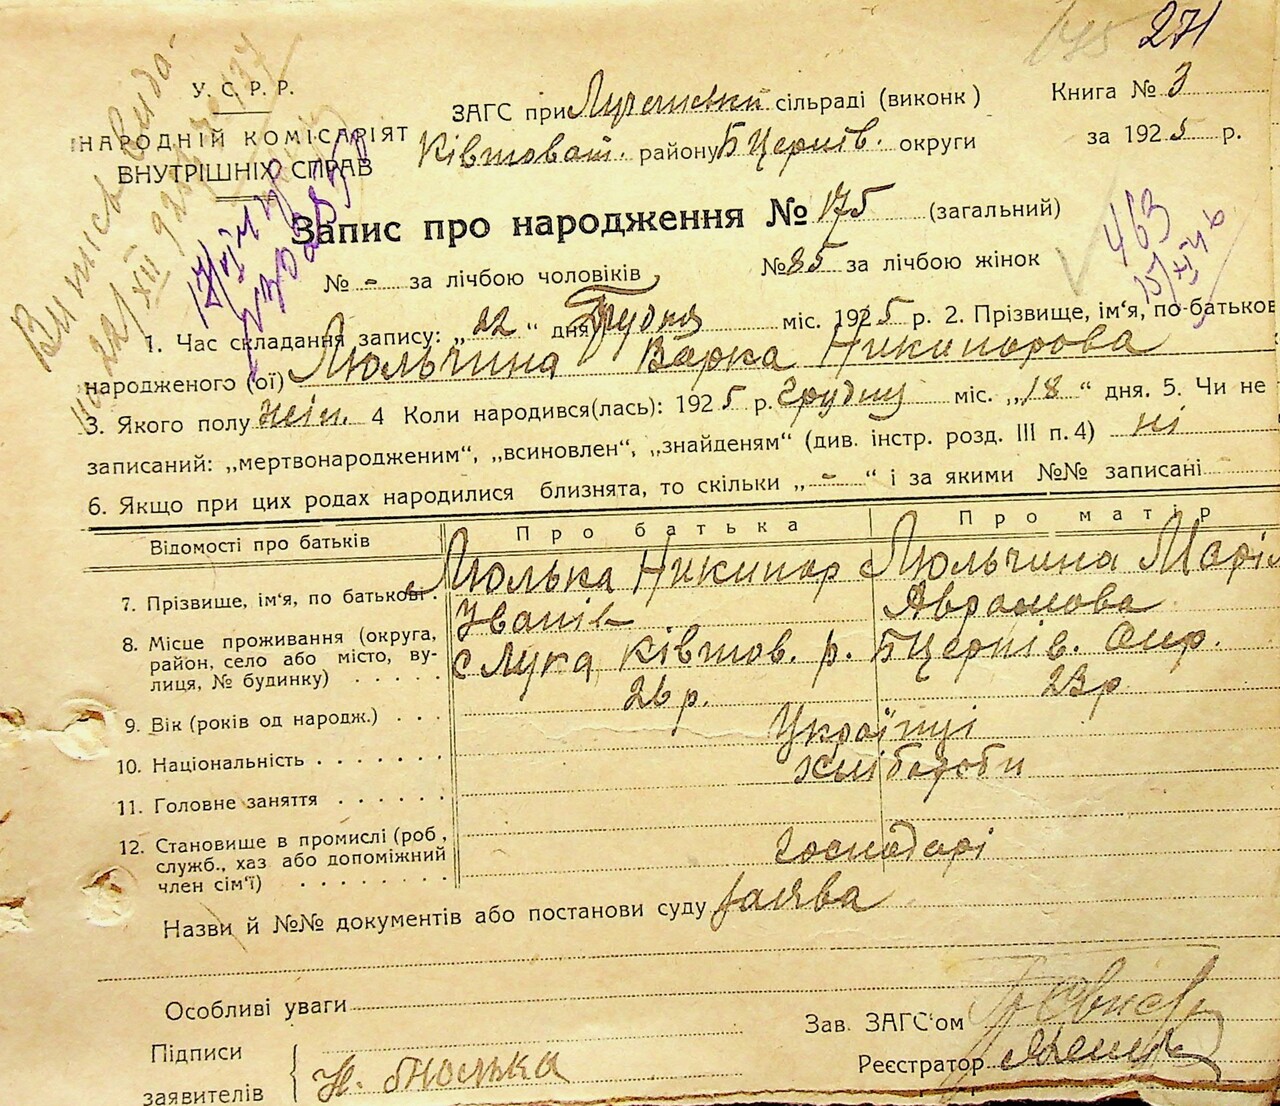 175 271
У. С. Р. Р.
НАРОДНІЙ КОМІСАРІЯТ
ВНУТРІШНІХ СПРАВ
ЗАГС при Лучанській сільраді (виконк)
Ківшоват. району БЦерків. округи
Книга № 3
за 1925 р.
Запис про народження № 175 (загальний)
№ - за лічбою чоловіків № 85 за лічбою жінок
463
1. Час складання запису: „22“ дня Грудня міс. 1925 р. 2. Прізвище, ім‘я, по-батькові
народженого (ої) Люльчина Варка Никипорова
3. Якого полу жін. 4 Коли народився(лась): 1925 р. Грудня міс. „18“ дня. 5. Чи не
записаний: „мертвонародженим“, „всиновлен“, „знайденям“ (див. інстр. розд. III п. 4) ні
6. Якщо при цих родах народилися близнята, то скільки „-“ і за якими №№ записані
Відомості про батьків Про батька Про матір
7. Прізвище, ім‘я, по батькові. Люлька Никипор Іванів Люльчина Марія Аврамова
8. Місце проживання (округа,
район, село або місто, ву-
лиця, № будинку) с Лука Ківшов. р. БЦерків. Окр.
9. Вік (років од народж.) 26 р. 23 р
10. Національність Українці
11. Головне заняття хлібороби
12. Становище в промислі (роб,
служб., хаз або допоміжний
член сім‘ї) Господарі
Назви й №№ документів або постанови суду заява
Особливі уваги
Підписи
заявителів Н. Люлька
Зав. ЗАГС‘ом
Реєстратор